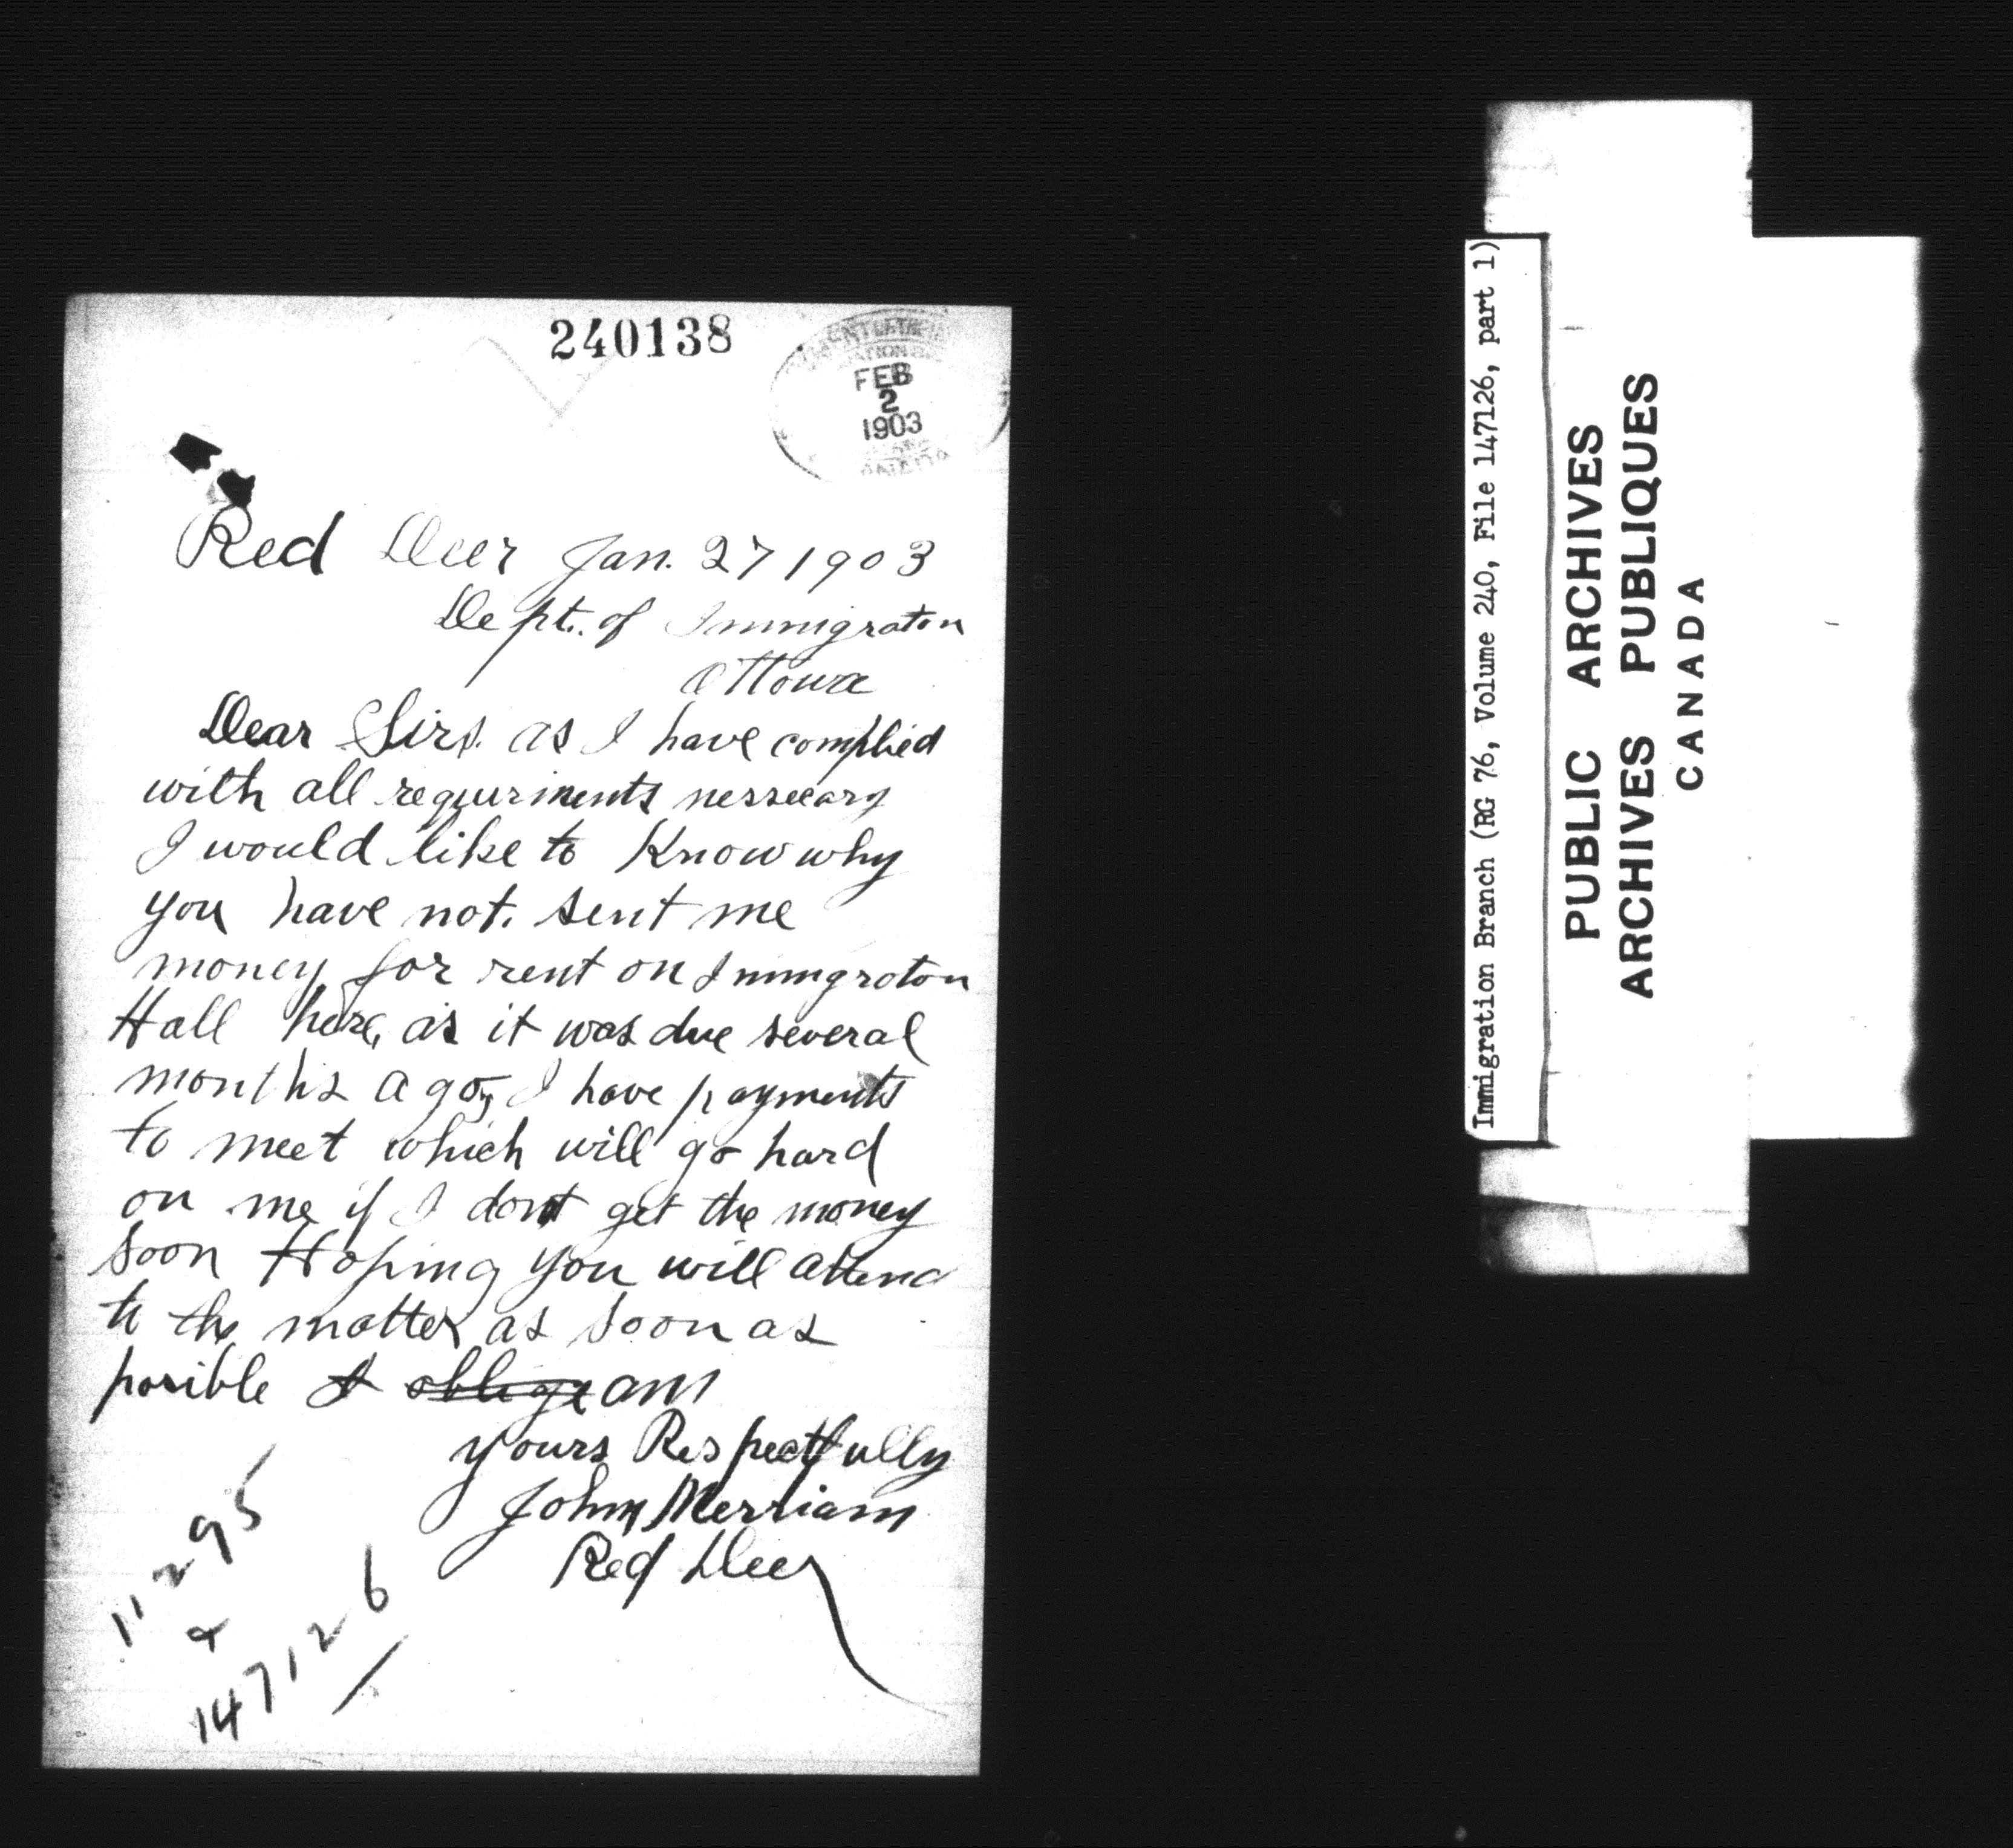 240138
FEB
2
1903
Red Deer Jan. 27 1903
Dept. of Immigraton
Ottowa
Dear Sirs. as I have complied
with all requirments nessecary
I would like to Know why
you have not. sent me
money for rent on Immigraton
Hall here, as it was due several
months ago, I have payments
to meet which will go hard
on me if I dont get the money
soon Hoping you will attend
to the matter as soon as
posible I oblige am
yours Respectfully
John Merriam
Red Deer
11295
&
147126
Immigration Branch (RG 76, Volume 240, File 147126, part 1)
PUBLIC ARCHIVES
ARCHIVES PUBLIQUES
CANADA